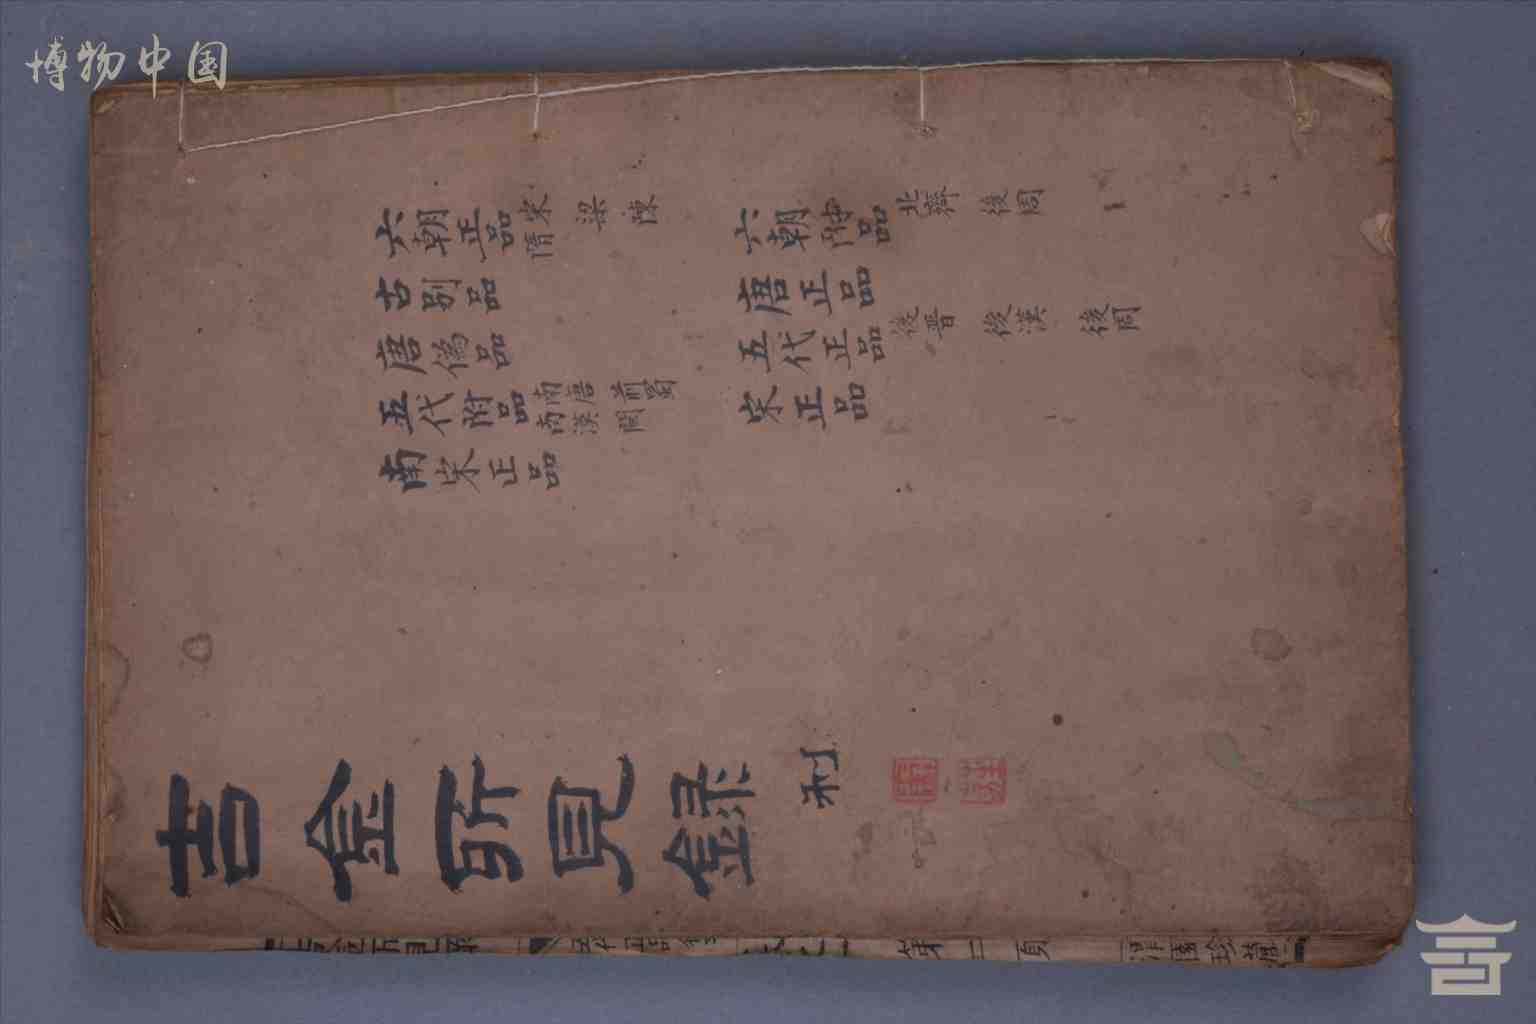 博物中国
六朝正品 宋 梁 陳
隋
六朝附品 北齊 後周
古別品
唐正品
唐偽品
五代正品 後晉 後漢 後周
五代附品 南唐 前蜀
南漢 閩
宋正品
南宋正品
吉金所見錄 利
第二頁